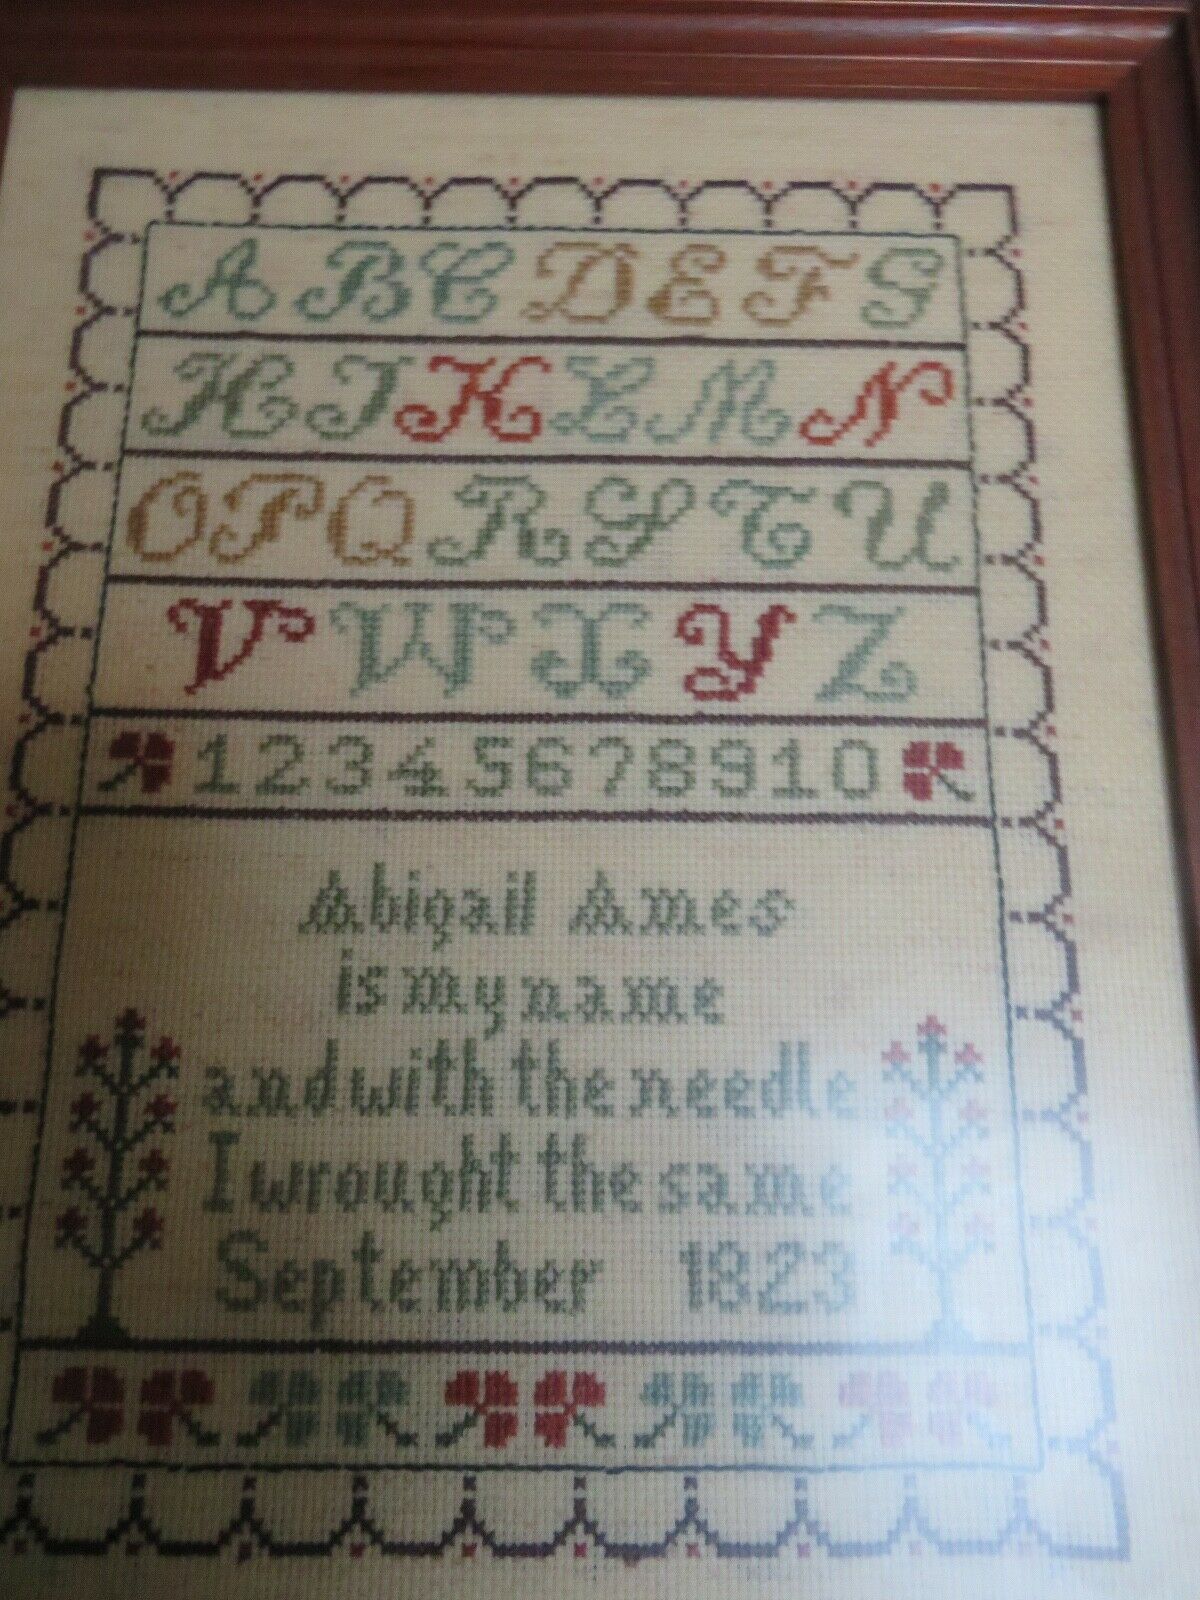 A B C D E F G
H I K L M N
O P Q R S T U
V W X Y Z
1 2 3 4 5 6 7 8 9 10
Abigail Ames
is my name
and with the needle
I wrought the same
September 1823